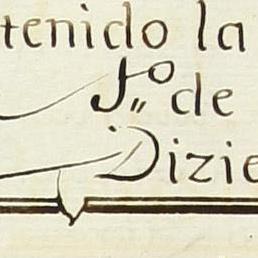 tenido la
Jº,, de
Dizie